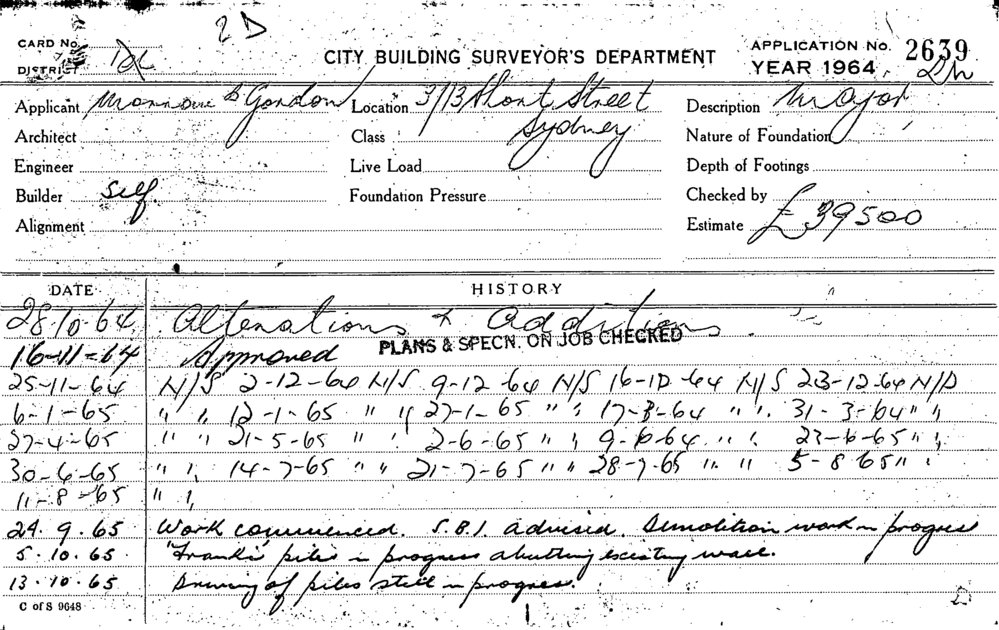 2D
CARD No.
DISTRICT
CITY BUILDING SURVEYOR'S DEPARTMENT
APPLICATION No. 2639
YEAR 1964
Applicant & Gordon Location 3/13 Short Street Description Major
Architect Class Sydney Nature of Foundation
Engineer Live Load Depth of Footings
Builder Self Foundation Pressure Checked by
Alignment Estimate £39500
DATE HISTORY
28-10-64 Alterations & Additions.
16-11-64 Approved PLANS & SPECN. ON JOB CHECKED
25-11-64 N/S 2-12-64 N/S 9-12-64 N/S 16-12-64 N/S 23-12-64 N/S
6-1-65 " " 12-1-65 " " 27-1-65 " " 17-3-64 " " 31-3-64 " "
27-4-65 " " 21-5-65 " " 2-6-65 " " 9-6-64 " " 23-6-65 " "
30-6-65 " " 14-7-65 " " 21-7-65 " " 28-7-65 " " 5-8-65 " "
11-8-65 " "
24.9.65 Work commenced. S.B.I. advised. Demolition work in progress
5.10.65. "Franki" piles in progress abutting existing wall.
13.10.65 Driving of piles still in progress.
C of S 9648